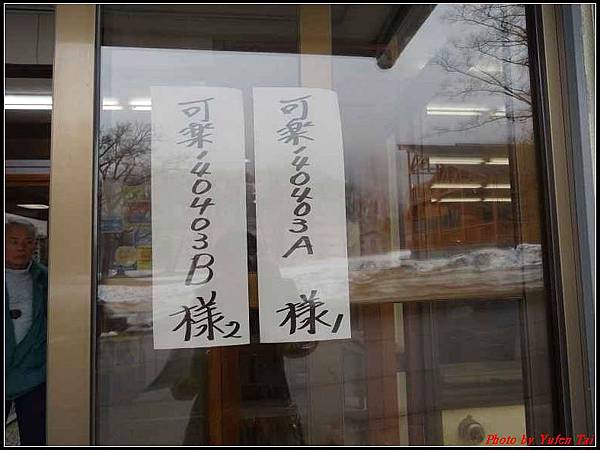 可楽・40403A様1
可楽・40403B様2
Photo by Yufen Tai